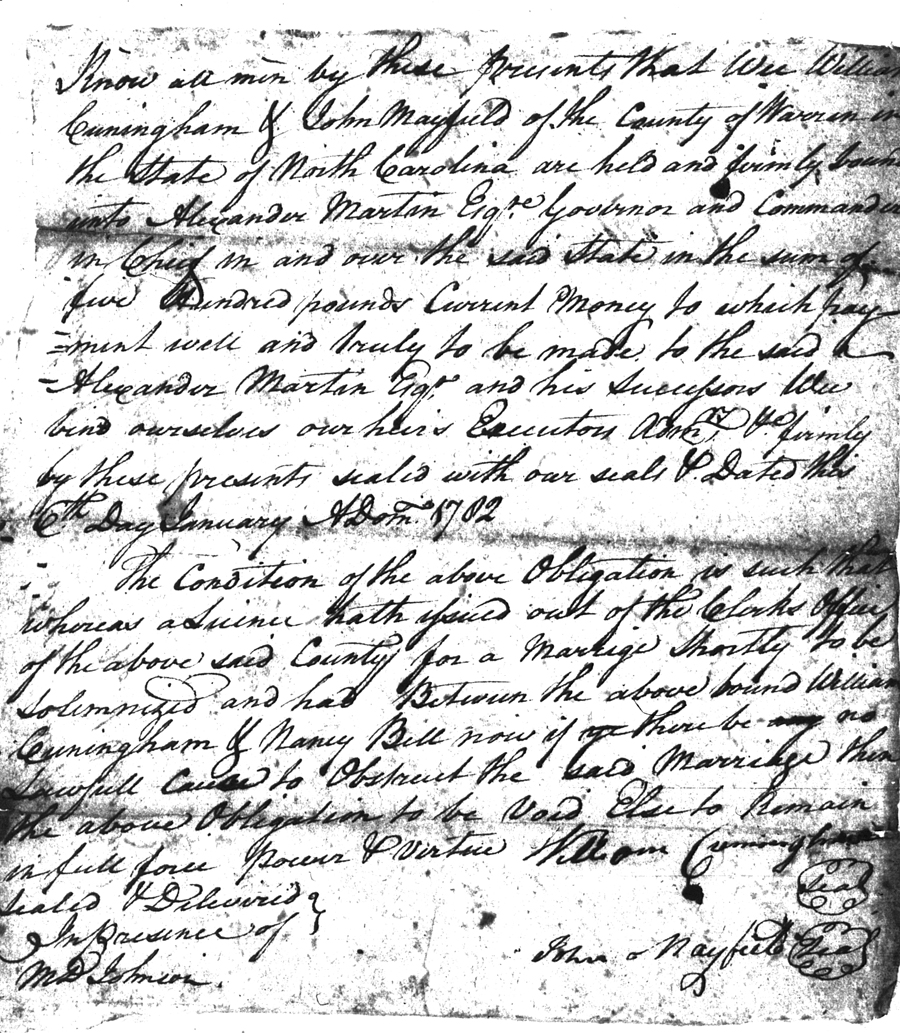 Know all men by these presents that Wee William
Cuningham & John Mayfield of the County of Warren in
the State of North Carolina are held and firmly bound
unto Alexander Martin Esqre. Governor and Commander
in Chief in and over the said State in the sum of
five Hundred pounds Current Money to which pay
=ment well and truly to be made to the said
=Alexander Martin Esqr. and his Successors Wee
bind ourselves our heirs Executors Admrs. &c. firmly
by these presents sealed with our seals & Dated this
6th Day January ADom. 1782
The Condition of the above Obligation is such that
whereas a Licence hath issued out of the Clerks Office
of the above said County for a Marrige Shortly to be
Solemnized and had Between the above bound William
Cuningham & Nancy Bell now if there be no
Lawfull Cause to Obstruct the said Marriage then
the above Obligation to be Void Else to Remain
in full force Power & Virtue William Cuningham
Seal
Sealed & Delivered
In Presence of
John o Mayfield Seal
MD Johnson.